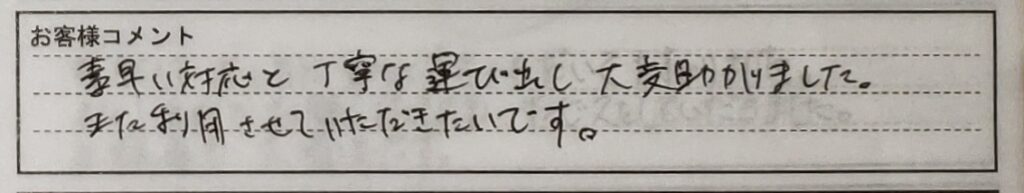 お客様コメント
素早い対応と丁寧な運び出し大変助かりました。
また利用させていただきたいです。